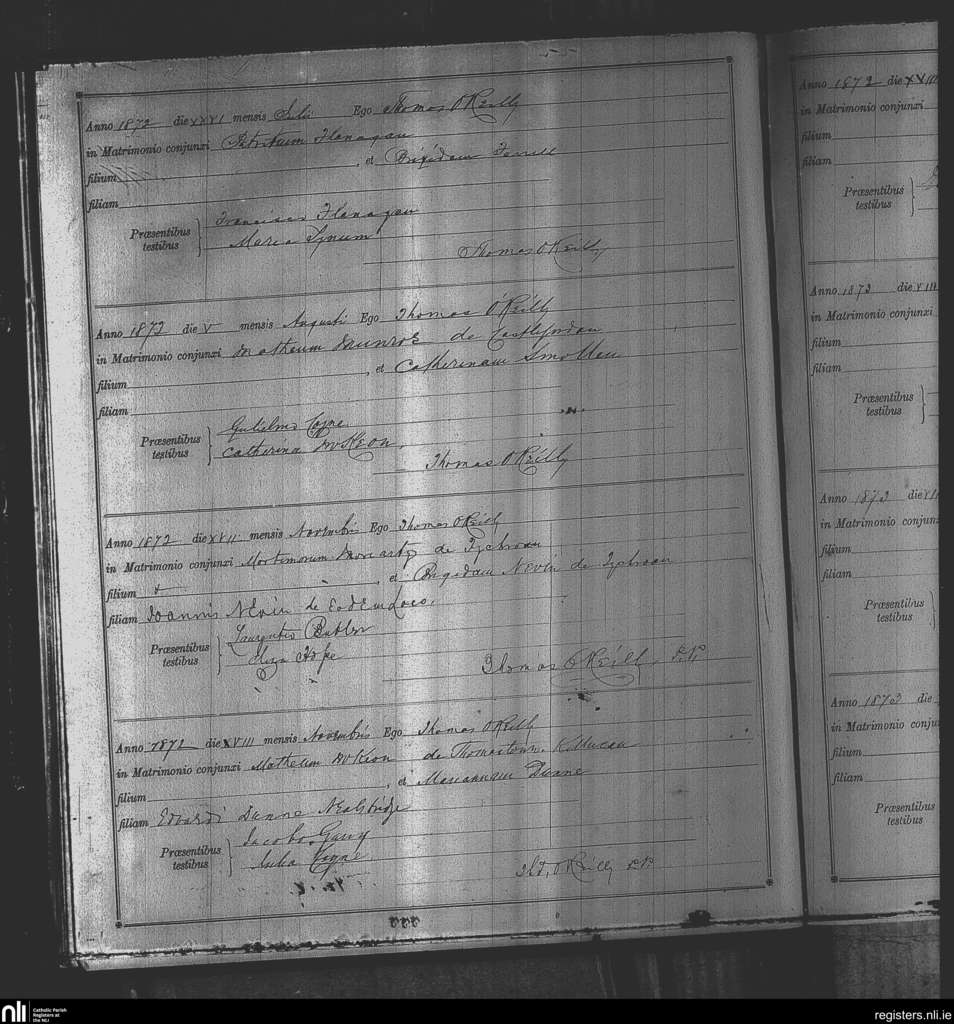 Anno 1872 die XXXI mensis Julii Ego Thomas O'Reilly
in Matrimonio conjunxi Patritium Flanagan
filium , et Brigidam Farrell
filiam
Præsentibus testibus } Franciscus Flanagan
Maria Lynum
Thomas O'Reilly
Anno 1872 die V mensis Augusti Ego Thomas O'Reilly
in Matrimonio conjunxi Matheum Munroe de Castlejordan
filium , et Catherinam Smollen
filiam
Præsentibus testibus } Gulielmo Coyne
Catherina McKeon
Thomas O'Reilly
Anno 1872 die XVII mensis Novembris Ego Thomas O'Reilly
in Matrimonio conjunxi Mortimorum Moriarty de
filium , et Brigidam Nevin de
filiam Joannis Nevin de Eodem Loco.
Præsentibus testibus } Laurentio Butler
Eliza Hope
Thomas O'Reilly P.P.
Anno 1872 die XVIII mensis Novembris Ego Thomas O'Reilly
in Matrimonio conjunxi Matheum McKeon de Thomastown Killucan
filium , et Mariannam Dunne
filiam Edvardi Dunne
Præsentibus testibus } Jacobo
Julia Coyne
O'Reilly P.P.
Anno 1872 die XVIII
in Matrimonio conjunxi
filium
filiam
Præsentibus testibus }
Anno 1873 die VIII
in Matrimonio conjunxi
filium
filiam
Præsentibus testibus }
Anno 1873 die
in Matrimonio conjunx
filium
filiam
Præsentibus testibus }
Anno 1873 die
in Matrimonio conju
filium
filiam
Præsentibus testibus
nli Catholic Parish Registers at the NLI
registers.nli.ie